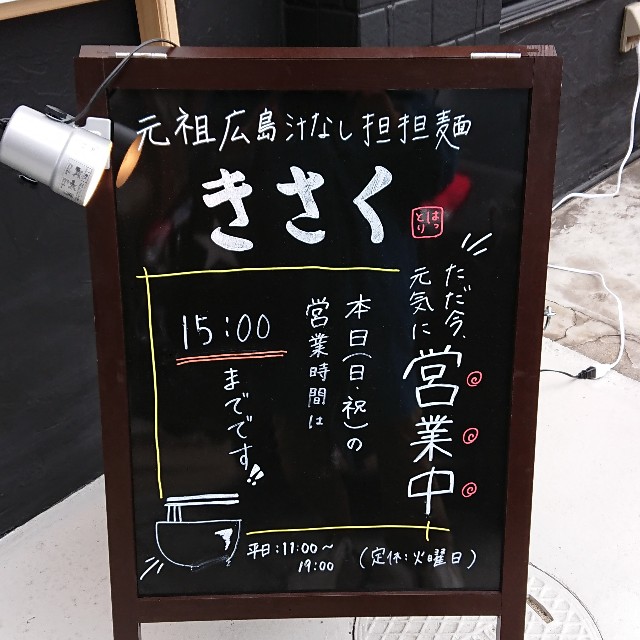 元祖広島汁なし担担麺
きさく
はっ
とり
ただ今、
元気に
営業中
本日(日・祝)の
営業時間は
15:00
までです!!
平日:11:00〜
19:00
(定休:火曜日)